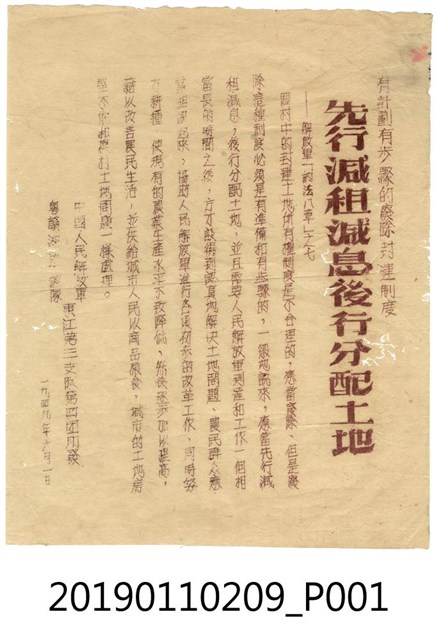 有計劃有步驟的廢除封建制度
先行減租減息後行分配土地
——解放軍一約法八章之七
農村中的封建土地所有權制度是不合理的，應當廢除、但是廢
除這種制度必須是有準備和有步驟的，一般地說來，應當先行減
租減息，後行分配土地，並且需要人民解放軍到達和工作一個相
當長的時間之後，方才談得到認真地解決土地問題、農民群众應
當組織起來，協助人民解放軍進行各種初步的改革工作，同時努
力耕種，使現有的農業生產水平不致降低，然後逐步加以提高，
藉以改善農民生活，並供給城市人民以商品糧食，城市的土地房
屋不能和農村土地問題一樣處理。
中國人民解放軍
粵贛湘邊縱隊
東江第三支隊第四团
一九四九年 月一日
20190110209_P001